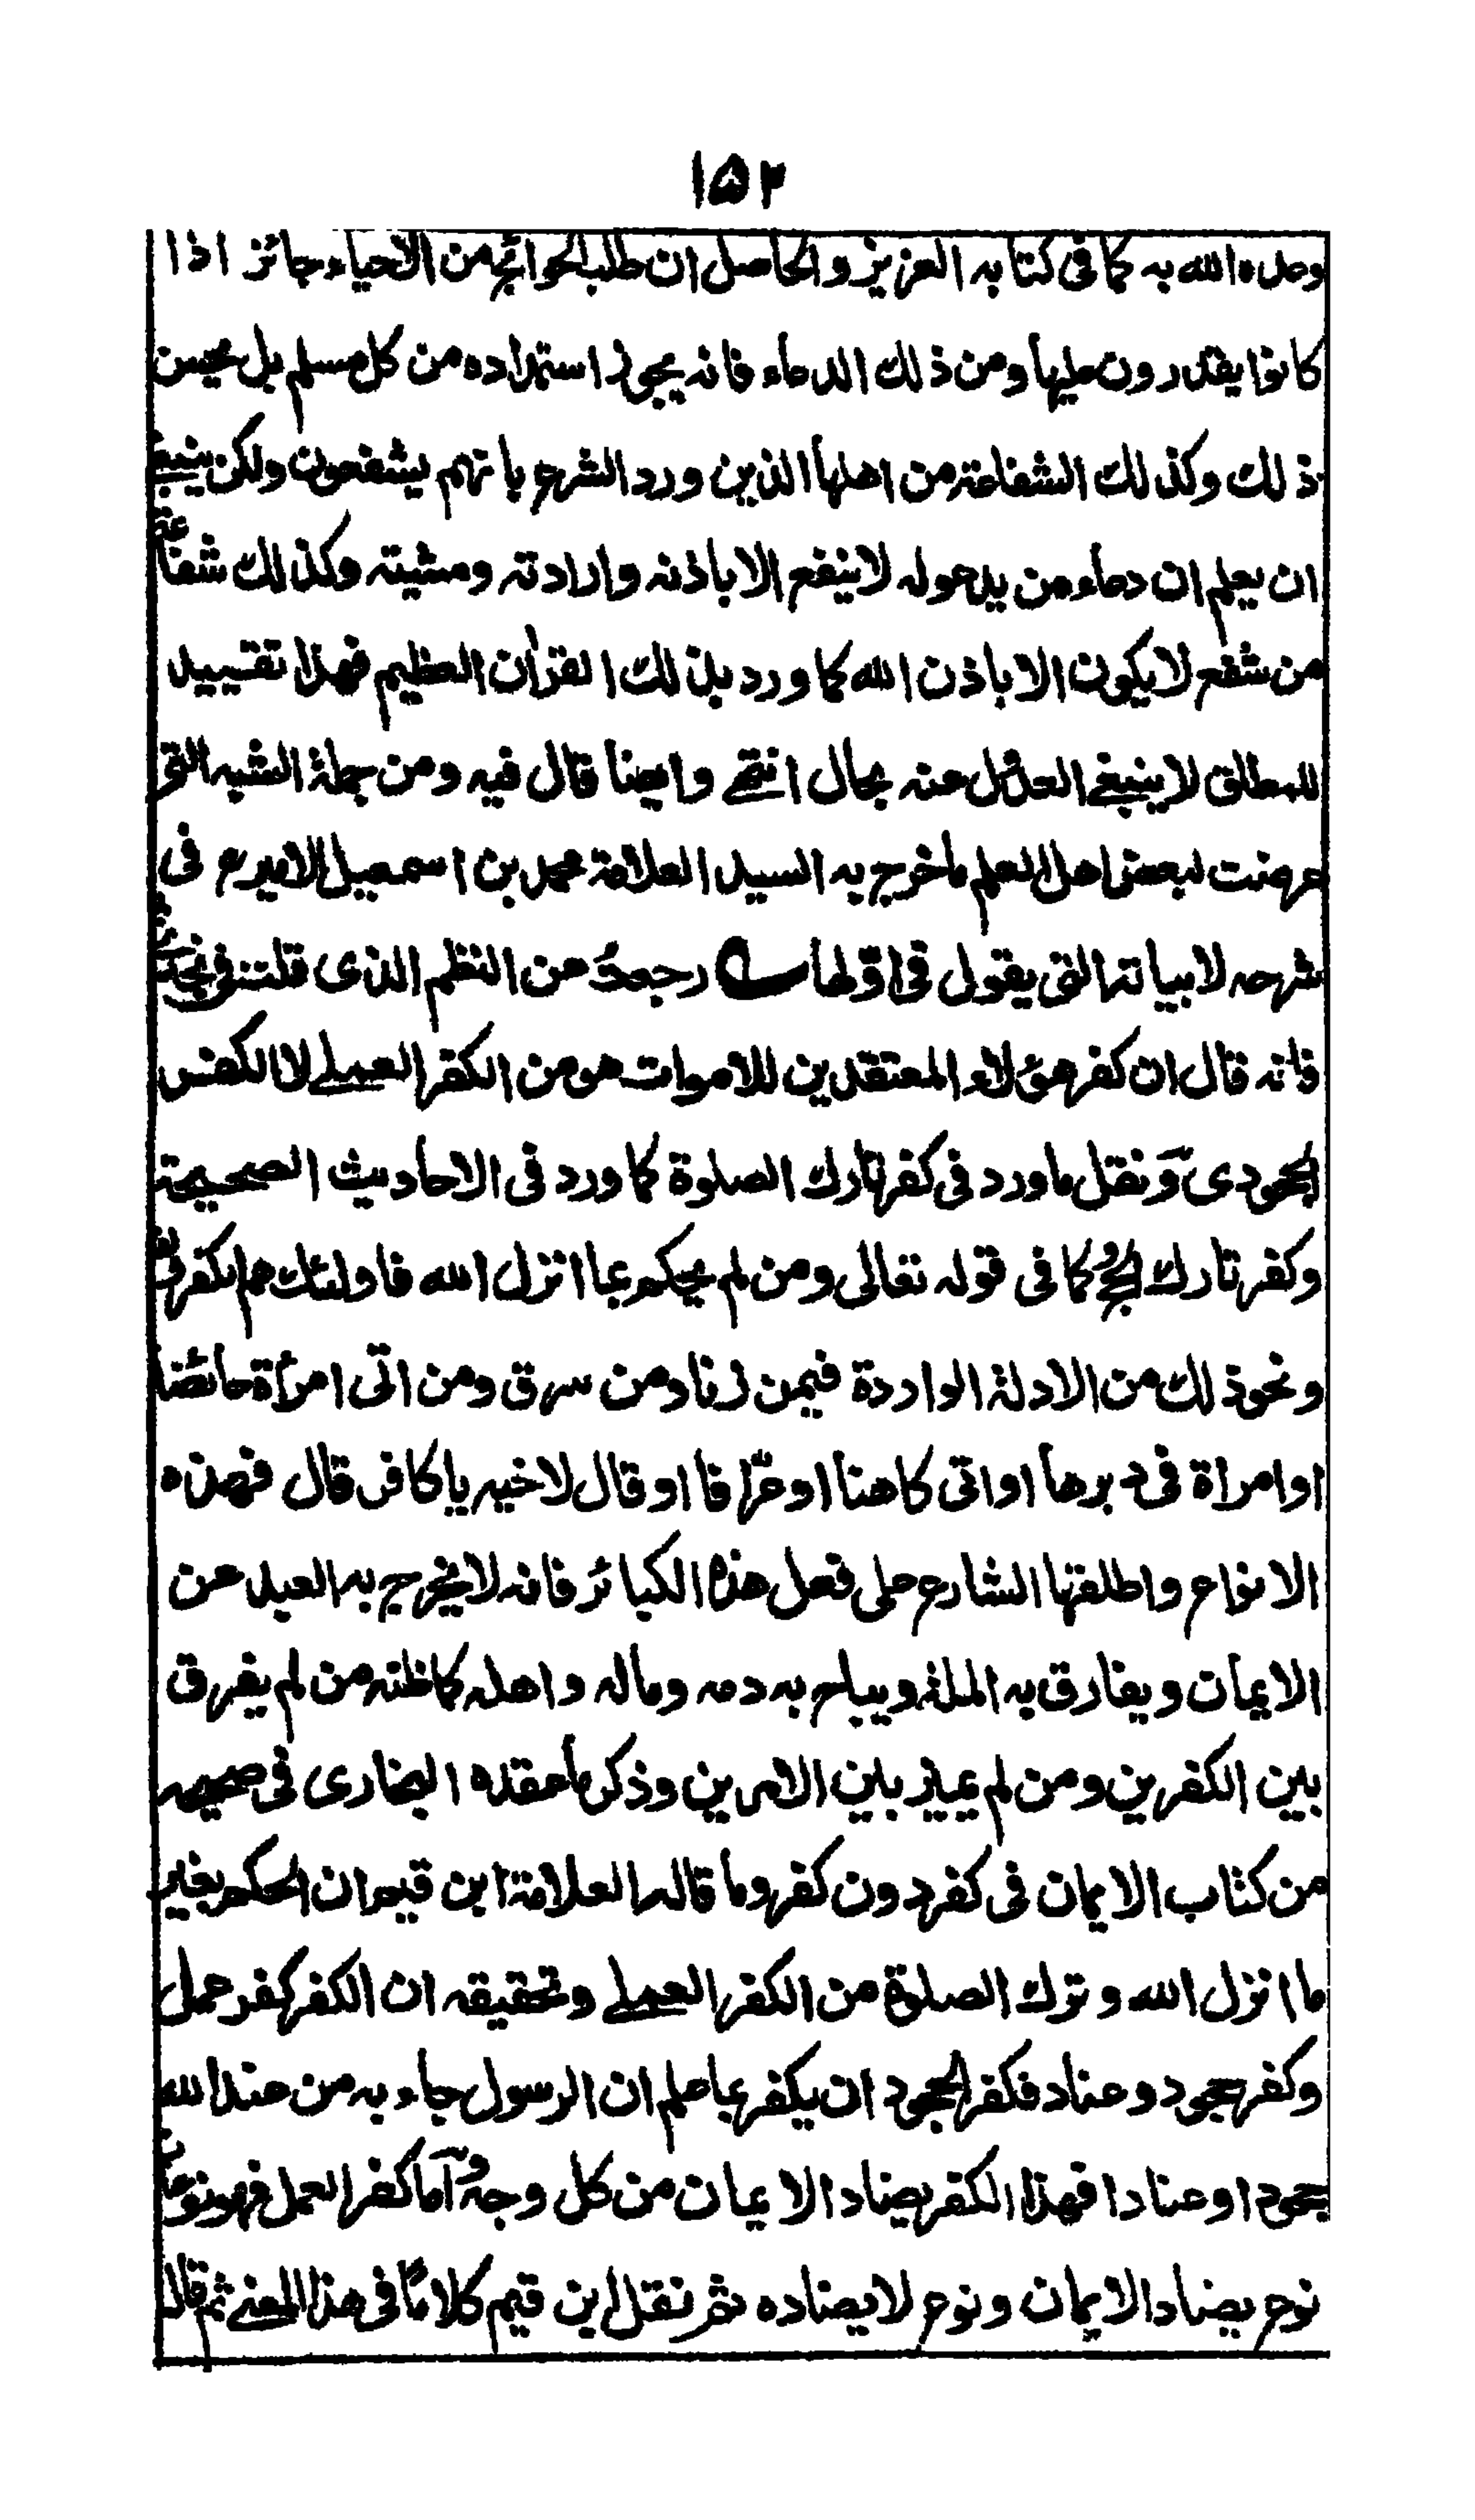 ١٥٢
وعده الله به كما فى كتابه العزيز والحاصل ان طلب الحوائج من الاحياء جائز اذا
كانوا يقدرون عليها ومن ذلك الدعاء فانه يجوز استمداده من كل مسلم بل يحسن
ذلك وكذلك الشفاعة من اهلها الذين ورد الشرع بانهم يشفعون ولكن ينبغى
ان يعلم ان دعاء من يدعو له لا ينفع الا باذنه وارادته ومشيته وكذلك شفاعة
من شفع لا يكون الا باذن الله كما ورد بذلك القرآن العظيم فهذا تقييد
للمطلق لا ينبغى العدول عنه بحال انتهى وايضا قال فيه ومن جملة الشبه التى
عرضت لبعض اهل العلم ما خرج به السيد العلامة محمد بن اسمعيل الامير رح فى
شرحه لابياته التى يقول فى اولها رجعت عن النظم الذى قلت فى نجد
فانه قال ان كفر هؤلاء المعتقدين للاموات هو من الكفر العملى لا الكفر
الجحودى ونقل ما ورد فى كفر تارك الصلوة كما ورد فى الاحاديث الصحيحة
وكفر تارك الحج كما فى قوله تعالى ومن لم يحكم بما انزل الله فاولئك هم الكفرون
ونحو ذلك من الادلة الواردة فيمن زنا ومن سرق ومن اتى امرأة حائضا
او امراة فى دبرها او اتى كاهنا او عرّافا او قال لاخيه يا كافر قال فهذه
الانواع واطلقها الشارع على فعل هذه الكبائر فانه لا يخرج به العبد عن
الايمان ويفارق به الملة ويباح به دمه وماله واهله كما ظنه من لم يفرق
بين الكفرين ومن لم يميز بين الامرين وذكر ما عقده البخارى فى صحيحه
من كتاب الايمان فى كفر دون كفر وما قاله العلامة ابن قيم ان الحكم بغير
ما انزل الله وترك الصلوة من الكفر العملى وتحقيقه ان الكفر كفر عمل
وكفر جحود وعناد فكفر الجحود ان يكفر بما علم ان الرسول جاء به من عند الله
جحودا وعنادا فهذا الكفر يضاد الايمان من كل وجه واما كفر العمل فهو نوعان
نوع يضاد الايمان ونوع لا يضاده ثم نقل ابن قيم كلاما فى هذا المعنى ثم قال